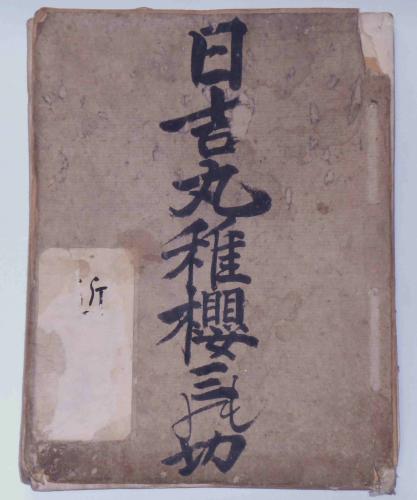 日吉丸稚櫻三の切